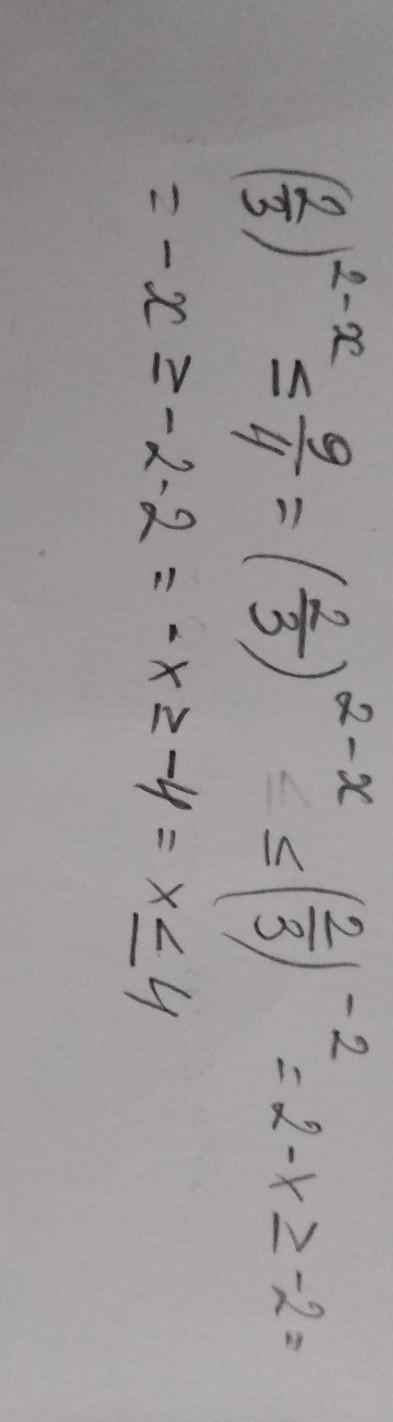 (2/3)^{2-x} ≤ 9/4 = (2/3)^{2-x} ≤ (2/3)^{-2} = 2-x ≥ -2 =
= -x ≥ -2-2 = -x ≥ -4 = x ≤ 4